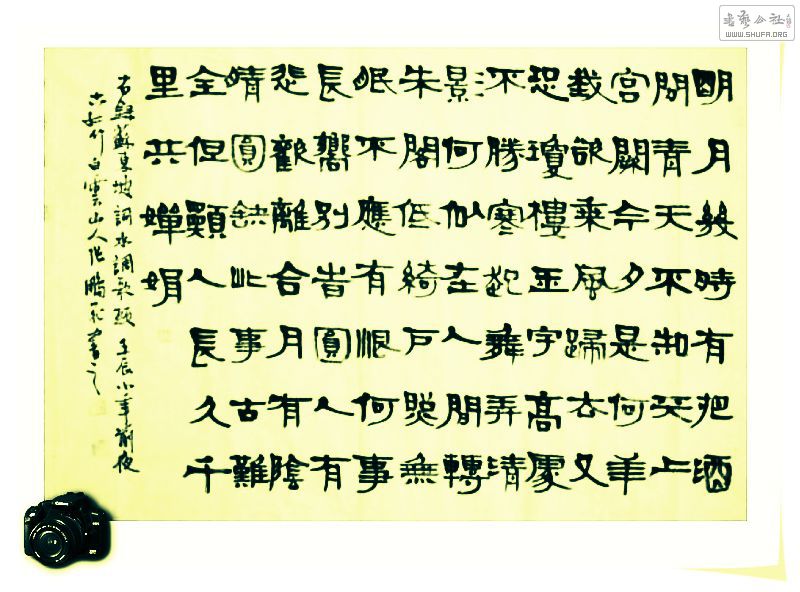 明月幾時有把酒
問青天不知天上
宮闕今夕是何年
我欲乘風歸去又
恐瓊樓玉宇高處
不勝寒起舞弄清
影何似在人間轉
朱閣低綺戶照無
眠不應有恨何事
長嚮別旹圓人有
悲歡離合月有陰
晴圓缺此事古難
全但願人長久千
里共嬋娟
右錄蘇東坡詞水調歌頭 壬辰小年前夜
白雲山人張鵬飛書之
書藝公社
WWW.SHUFA.ORG
Canon